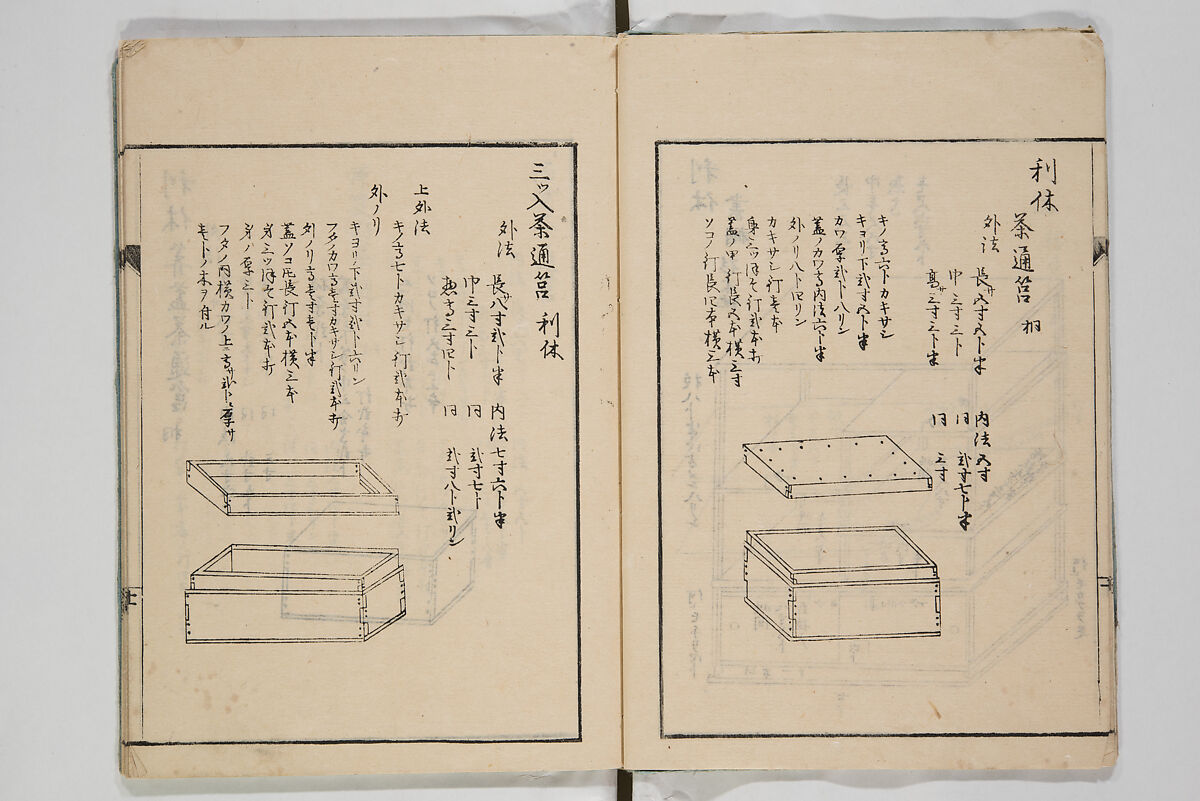 利休
茶通筥 桐
外法 長サ五寸五ト半 内法 五寸
巾三寸三ト 同 弐寸七ト半
高サ三寸三ト半 同 三寸
キノ高六トカキサシ
キヨリ下弐寸五ト半
カワ厚弐ト八リン
蓋ノカワ高内法六ト半
外ノリ八ト四リン
カキサシ釘壱本
身三ツほそ釘弐本ホ
蓋ノ甲釘長五本横三寸
ソコノ釘長四本横三本
三ッ入茶通筥 利休
外法 長サ八寸弐ト半 内法 七寸六ト半
巾三寸三ト 同 弐寸七ト
惣高三寸四ト 同 弐寸八ト弐リン
上外法
キノ高七トカキサシ釘弐本ホ
外ノリ
キヨリ下弐寸弐ト六リン
フタノカワ高壱寸カキサシ釘弐本ホ
外ノリ高壱寸壱ト半
蓋ソコ共長釘五本横三本
身三ッほそ釘弐本ホ
身ノ厚三ト
フタノ内横カワノ上ニ高サ弐ト厚サ
壱トノ木ヲ付ル
上